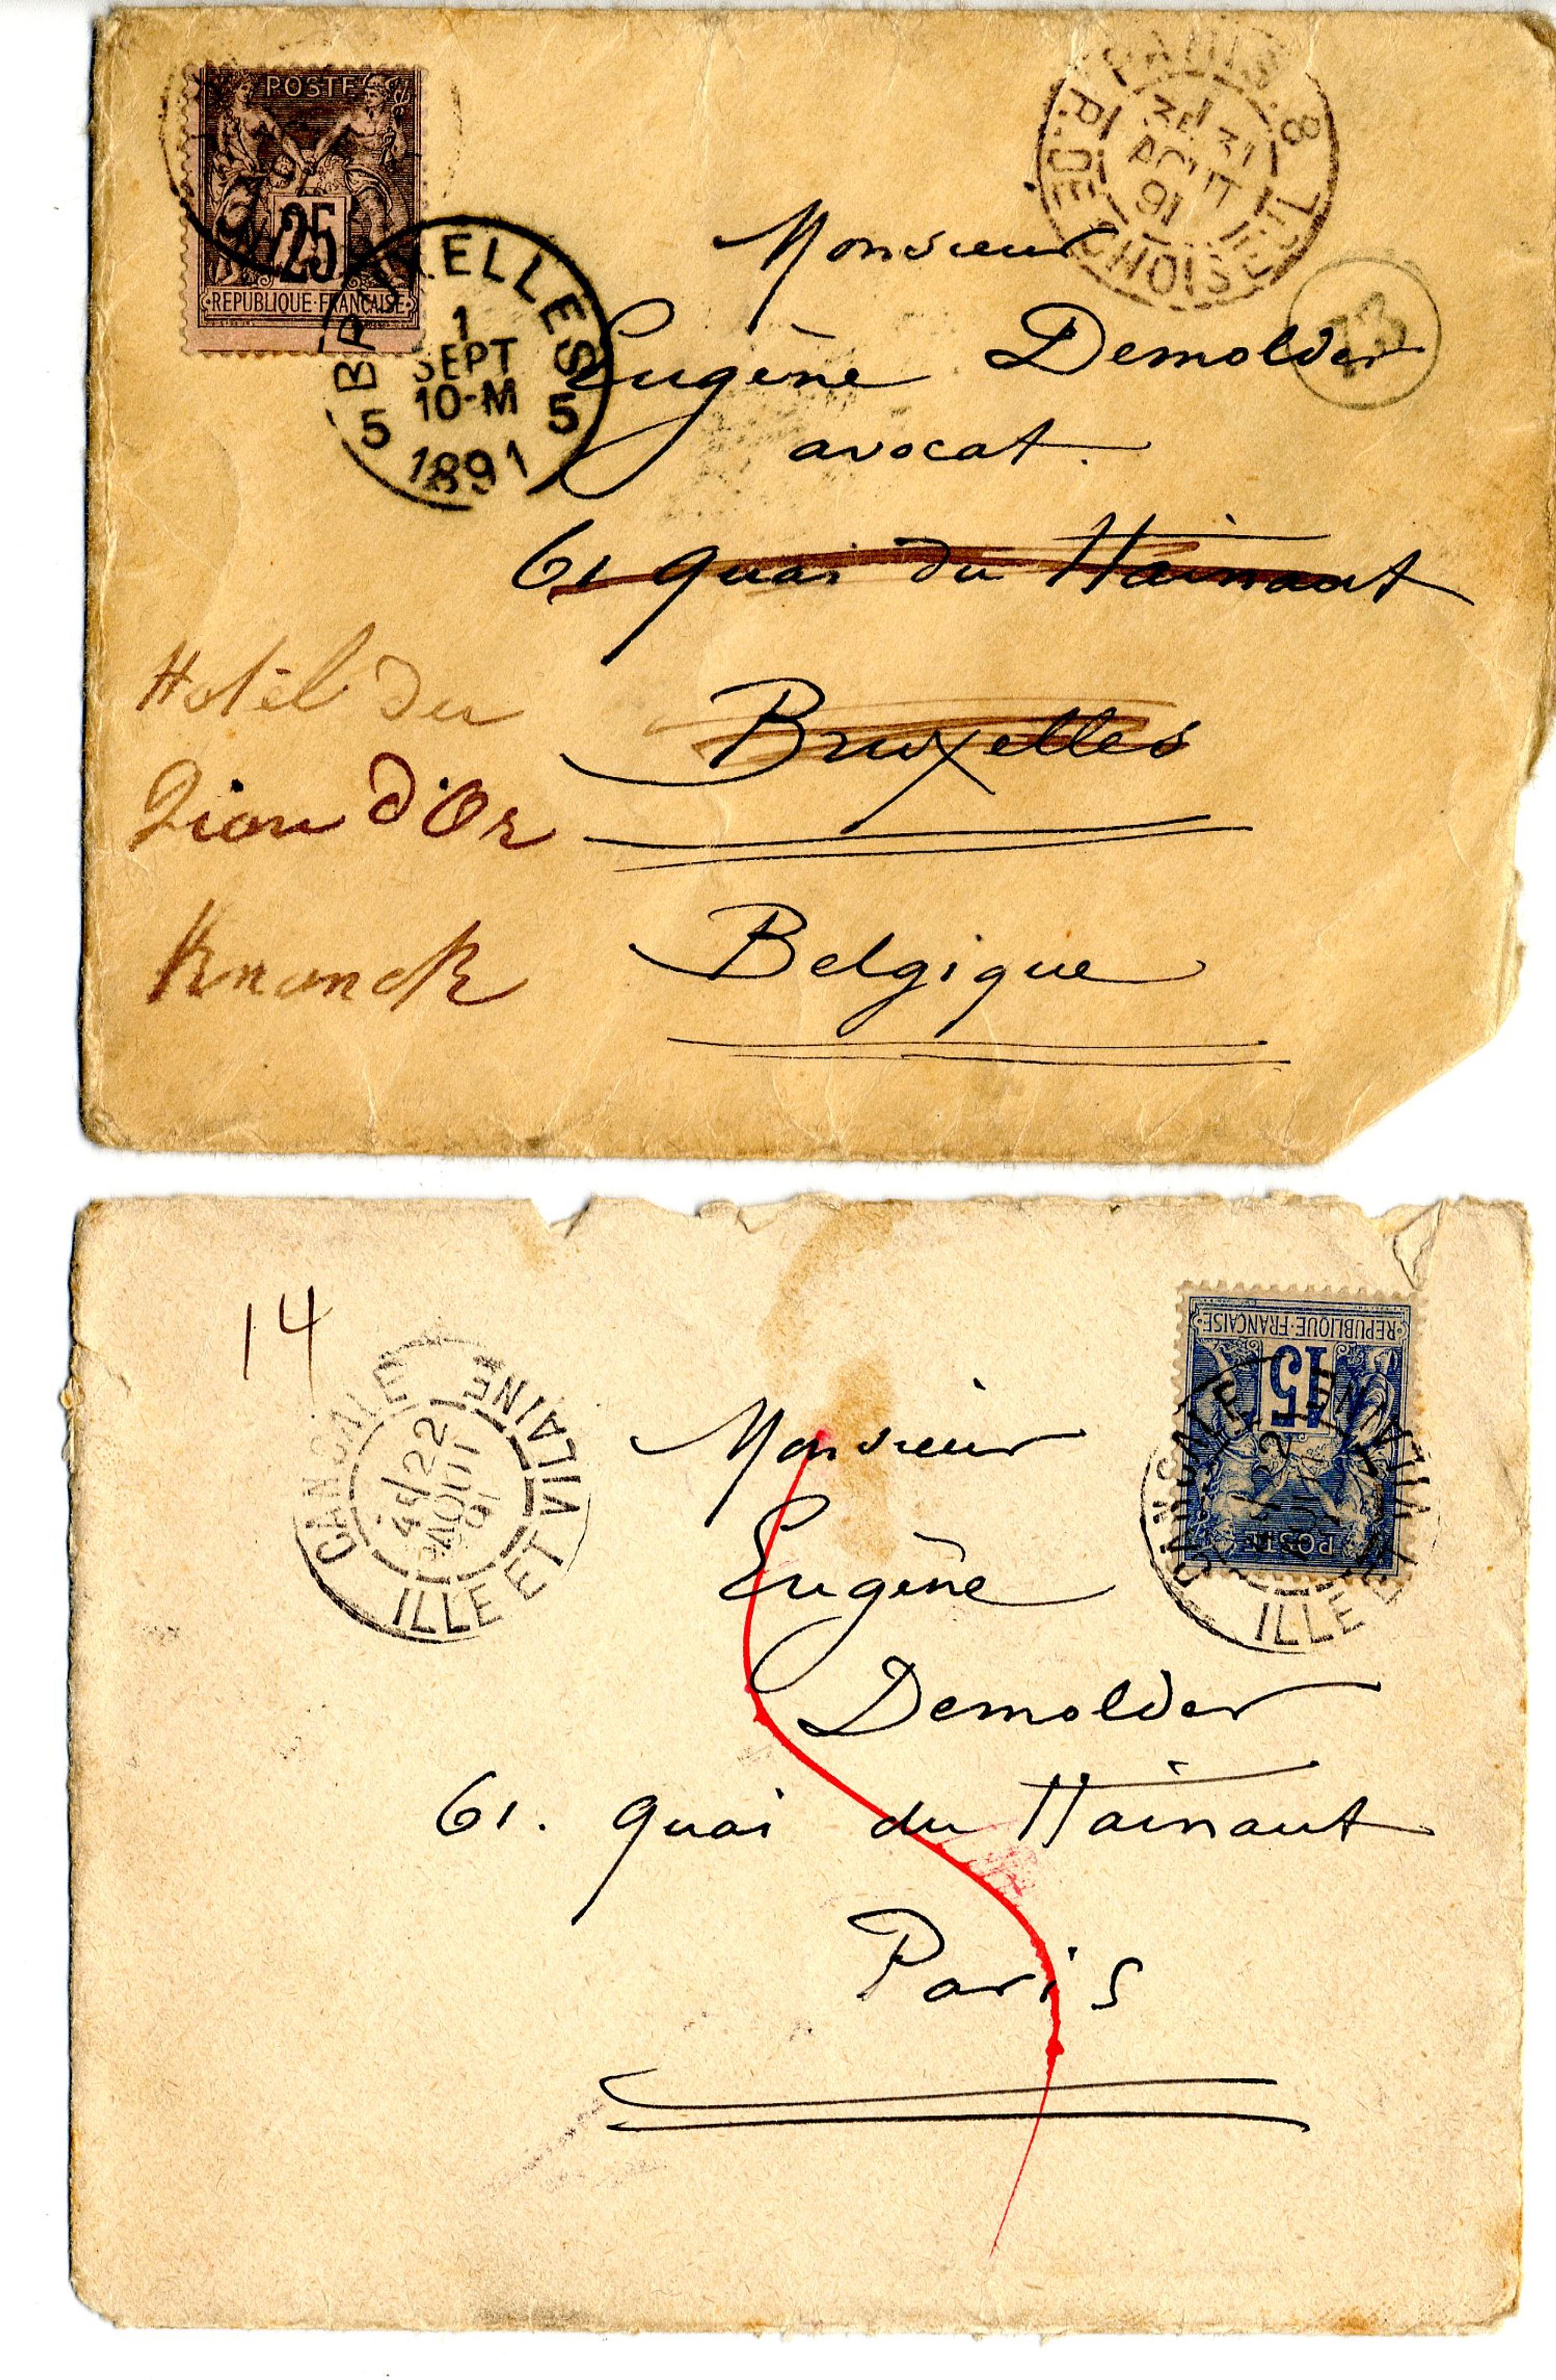 POSTE
25
REPUBLIQUE·FRANÇAISE
BRUXELLES
1
SEPT
10-M
5 5
1891
PARIS. 8
R. DE CHOISEUL
3E 31
AOUT
91
Monsieur
Eugène Demolder
avocat.
61 quai du Hainaut
Bruxelles
Belgique
Hotel du
Lion d'Or
14
CANCALE
ILLE ET VILAINE
4E 22
AOUT
91
REPUBLIQUE·FRANÇAISE
15
POSTE
CANCALE
ILLE ET VILAINE
Monsieur
Eugène
Demolder
61. quai du Hainaut
Paris